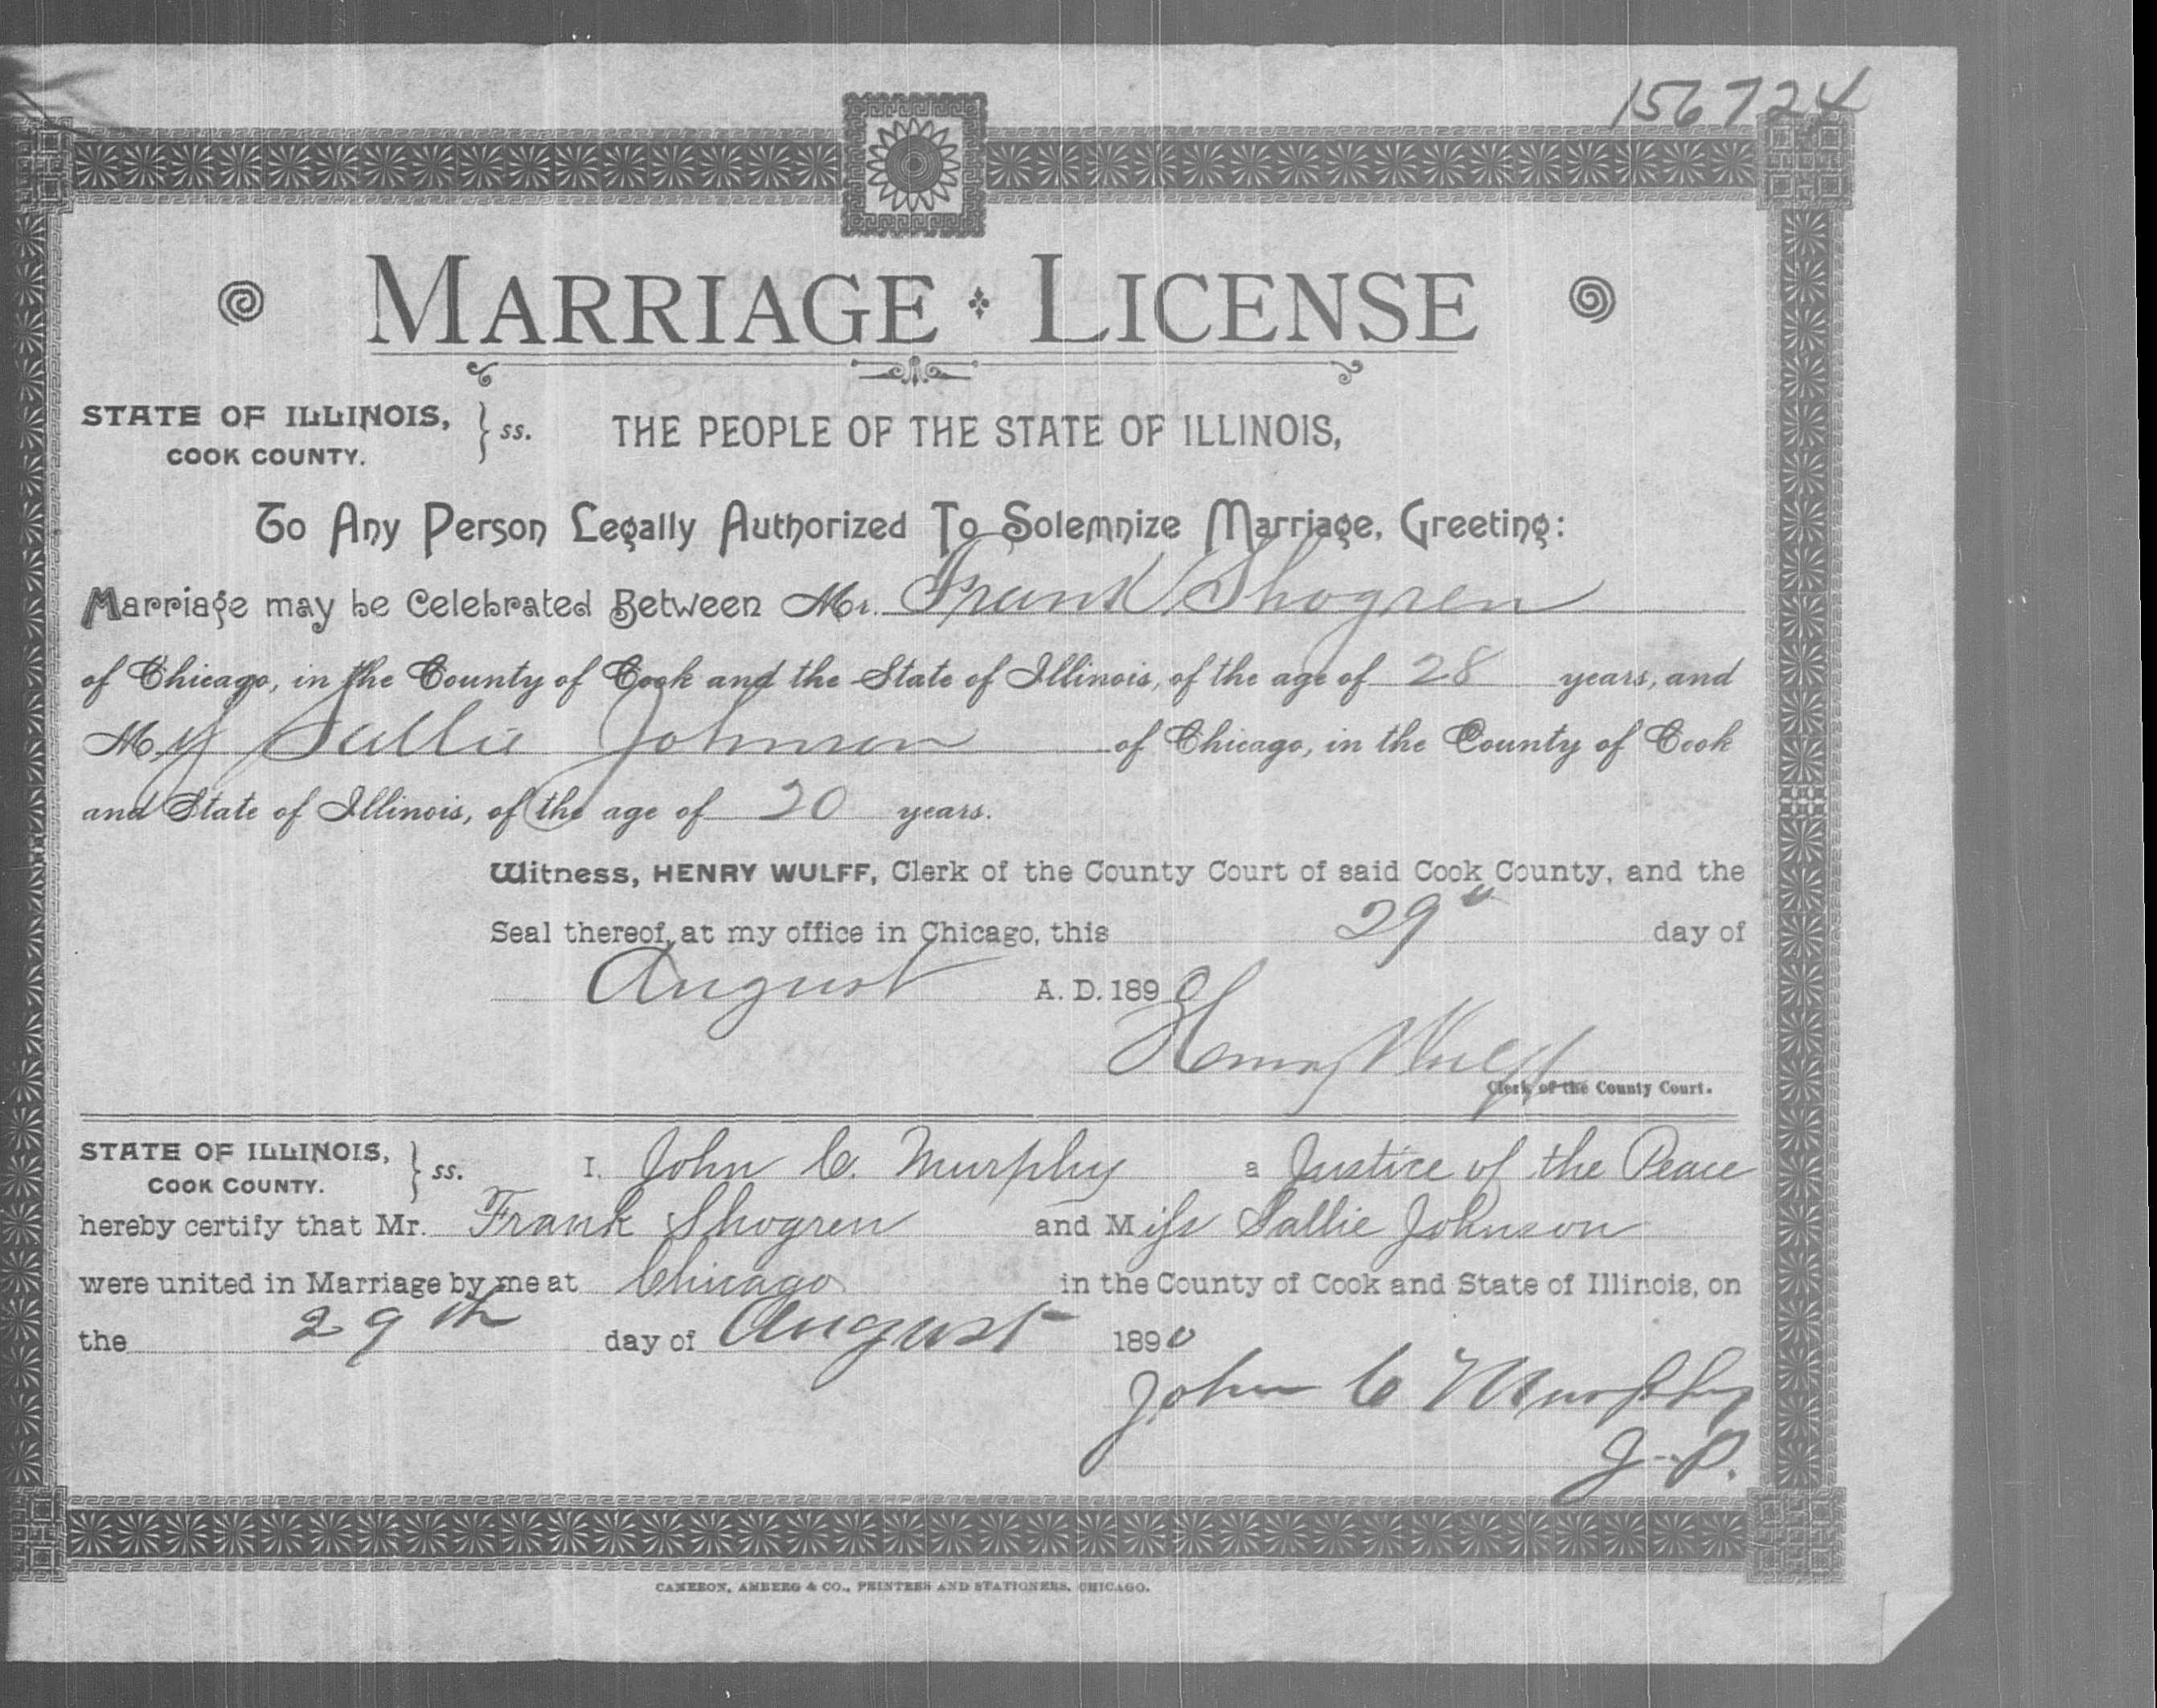 156724
MARRIAGE LICENSE
STATE OF ILLINOIS, } ss. THE PEOPLE OF THE STATE OF ILLINOIS,
COOK COUNTY.
To Any Person Legally Authorized To Solemnize Marriage, Greeting:
Marriage may be Celebrated Between Mr. Frank Shogren
of Chicago, in the County of Cook and the State of Illinois, of the age of 28 years, and
M Sallie Johnson of Chicago, in the County of Cook
and State of Illinois, of the age of 20 years.
Witness, HENRY WULFF, Clerk of the County Court of said Cook County, and the
Seal thereof, at my office in Chicago, this 29" day of
August A. D. 1890
Henry Wulff
Clerk of the County Court.
STATE OF ILLINOIS, } ss. I, John C. Murphy a Justice of the Peace
COOK COUNTY.
hereby certify that Mr. Frank Shogren and Miss Sallie Johnson
were united in Marriage by me at Chicago in the County of Cook and State of Illinois, on
the 29th day of August 1890
John C Murphy
J.P.
CAMERON, AMBERG & CO., PRINTERS AND STATIONERS, CHICAGO.